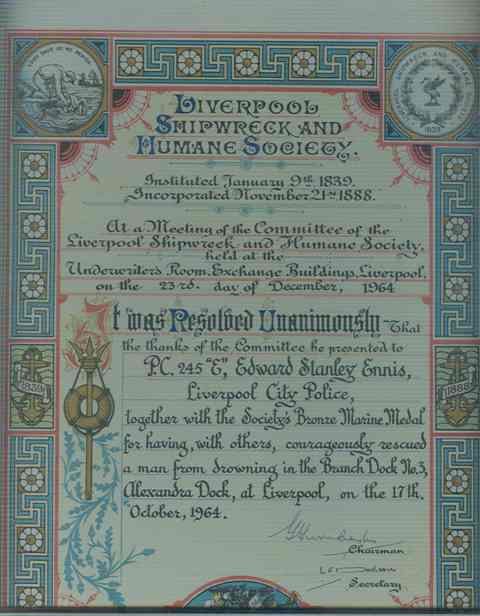 LIVERPOOL
SHIPWRECK AND
HUMANE SOCIETY.
Instituted January 9th 1839.
Incorporated November 21st 1888.
At a Meeting of the Committee of the
Liverpool Shipwreck and Humane Society,
held at the
Underwriters Room, Exchange Buildings, Liverpool,
on the 23rd. day of December, 1964
It was Resolved Unanimously That
the thanks of the Committee be presented to
P.C. 245 "E", Edward Stanley Ennis,
Liverpool City Police,
together with the Society's Bronze Marine Medal
for having, with others, courageously rescued
a man from drowning in the Branch Dock No.3,
Alexandra Dock, at Liverpool, on the 17th.
October, 1964.
Chairman
Secretary
1839
1888
1839